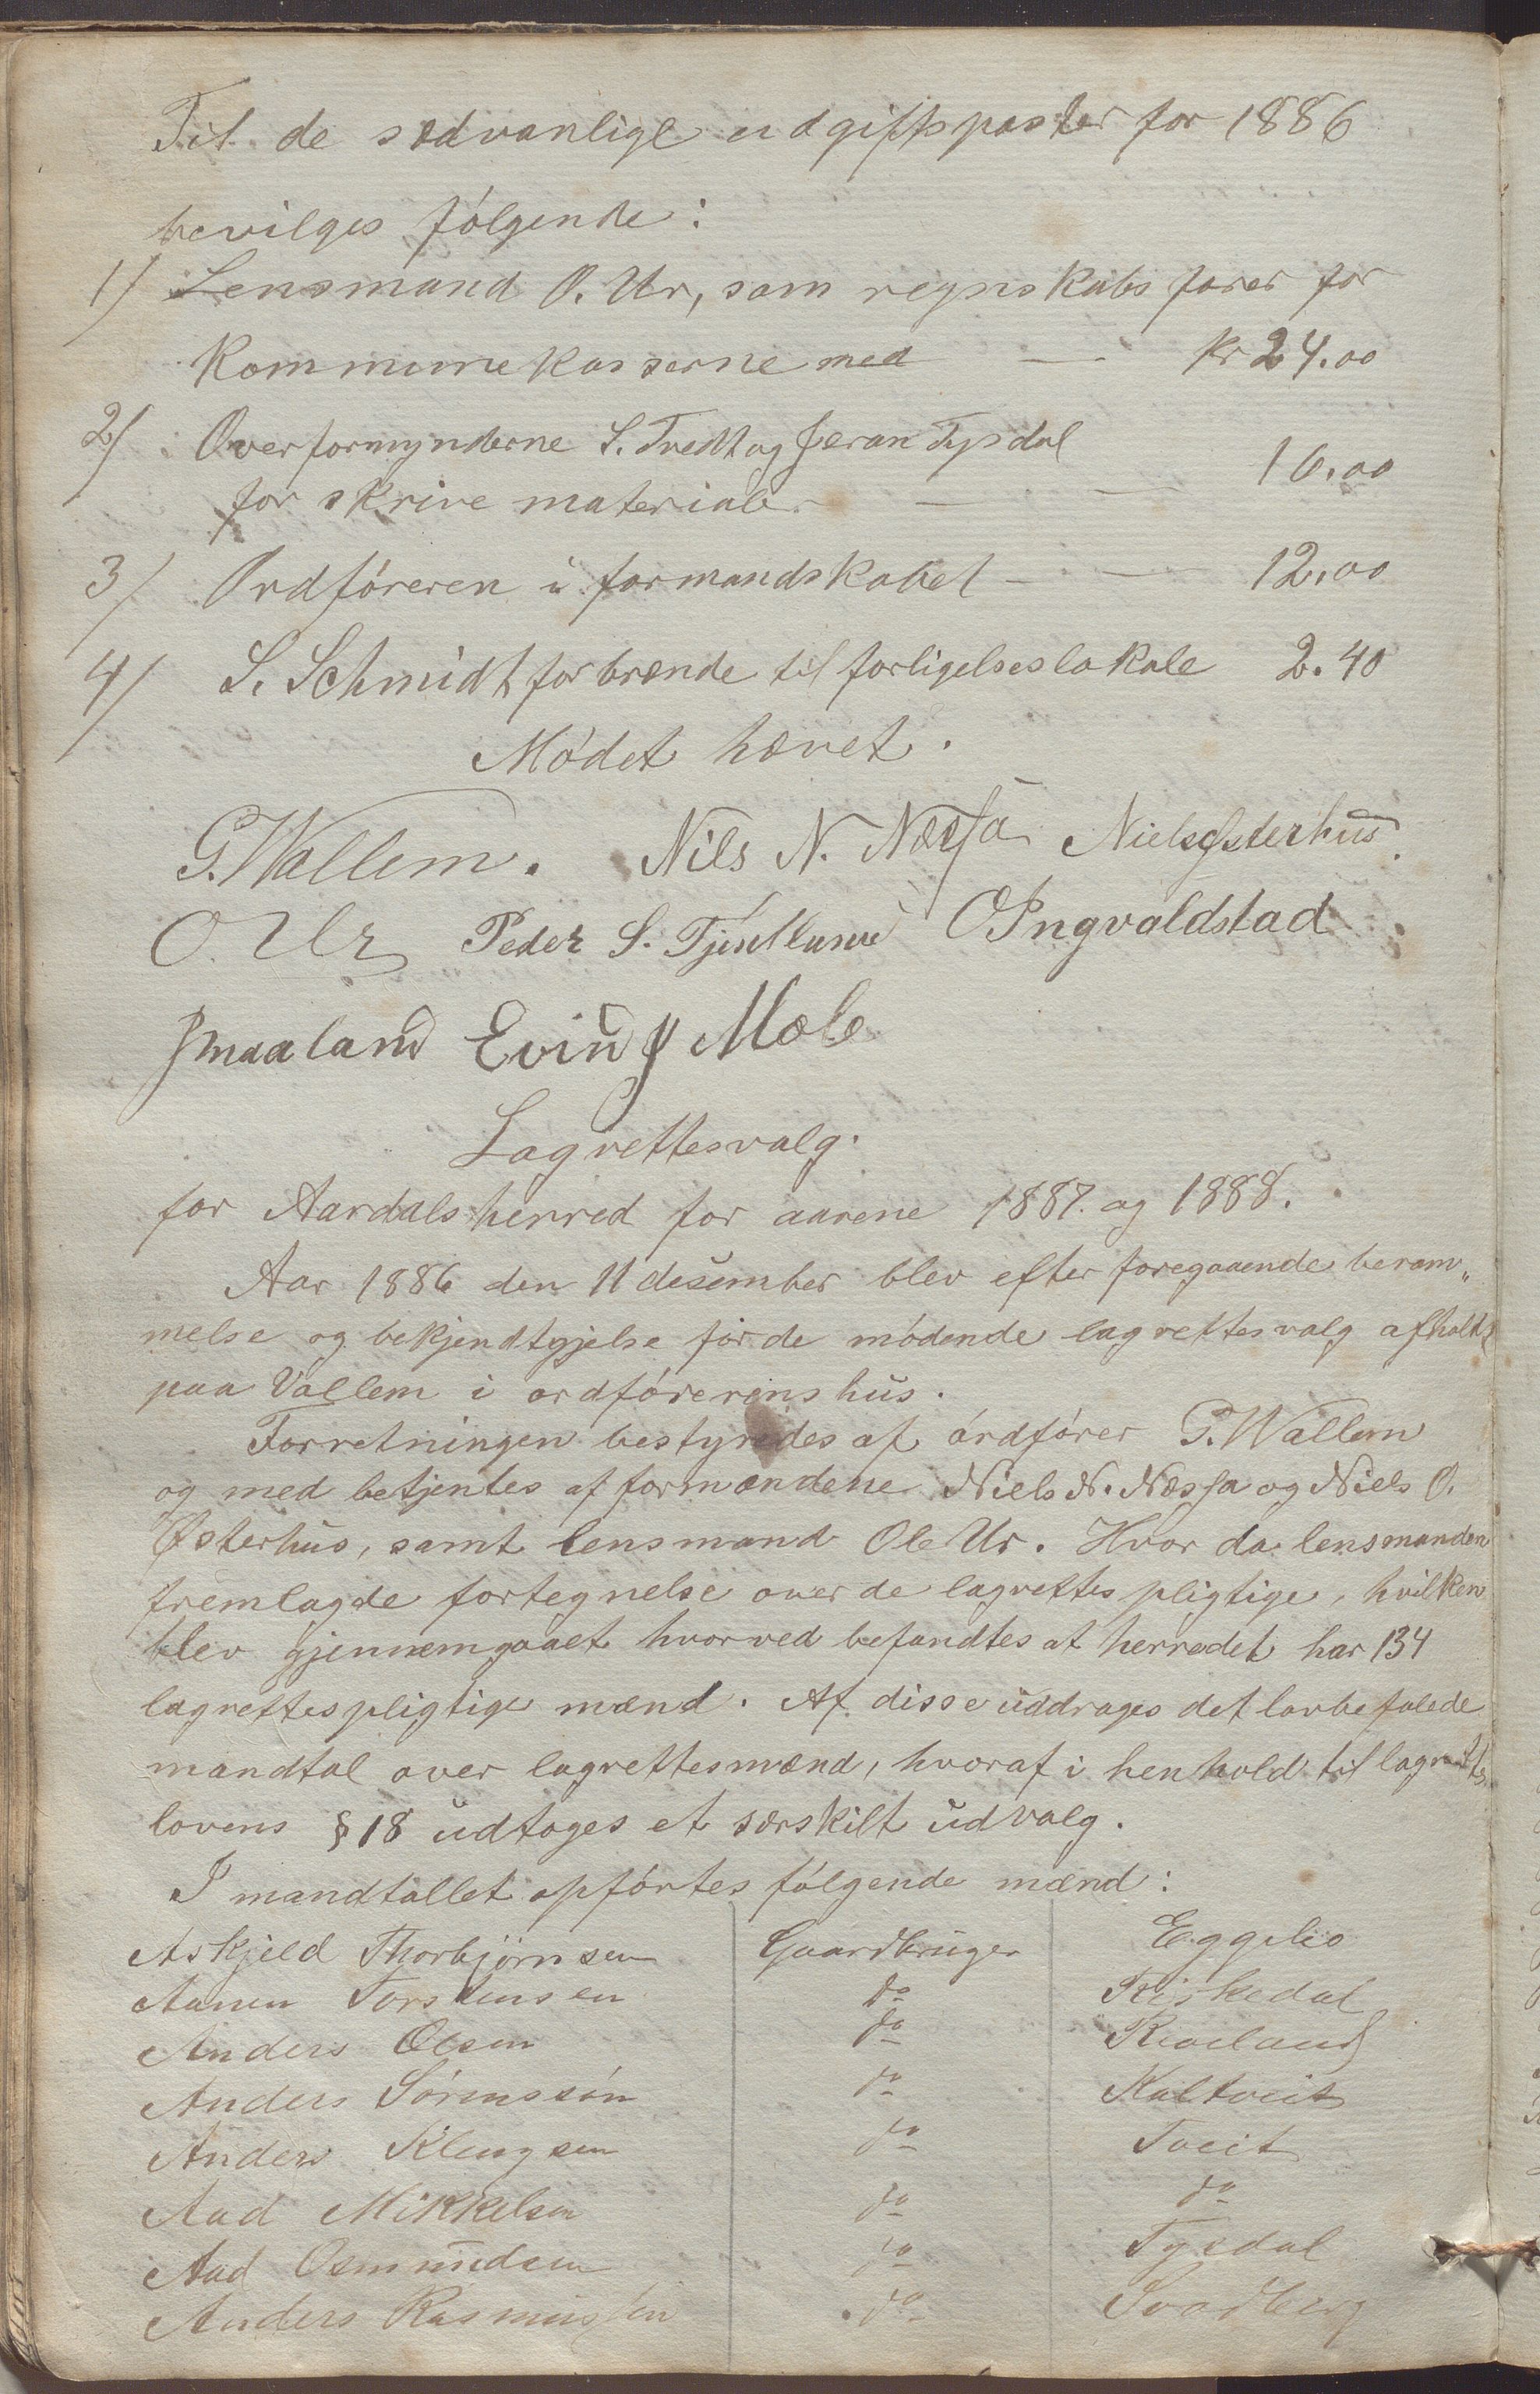 Til de sedvanlige udgiftsposter for 1886
bevilges følgende:
1/ Lensmand O. Ur, som regnskabsfører for
Kommunekasserne med — — kr 24.00
2/ Overformynderne S. Tvedt og Jeran Tysdal
for skrivematerialer — — 16.00
3/ Ordføreren i formandskabet — — 12.00
4/ S. Schmidt for brænde til forligelseslokale 2.40
Mødet hævet.
G. Wallem. Nils N. Næsja Niels Østerhus
O. Ur Peder S. Tjentland O Ingvaldstad
J maaland Evind J Mæle
Lagrettesvalg.
for Aardals herred for aarene 1887. og 1888.
Aar 1886 den 11 desember blev efter foregaaende beram„
melse og bekjendtgjelse for de mødende lagrettesvalg afholdt
paa Vallem i ordførerens hus.
Forretningen bestyredes af ordfører G. Wallem
og med betjentes af formændene Niels N. Næsja og Niels O.
Østerhus, samt lensmand Ole Ur. Hvor da lensmanden
fremlagde fortegnelse over de lagrettespligtige, hvilken
blev gjennemgaaet hvorved befandtes at herredet har 134
lagrettespligtige mænd. Af disse uddrages det lovbefalede
mandtal over lagrettesmænd, hvoraf i henhold til lagrettes
lovens § 18 udtoges et særskilt udvalg.
I mandtallet opførtes følgende mænd:
Askjeld Thorbjørnsen Gaardbruger Eggelio
Aanen Torstensen do Riskedal
Anders Olsen do Riveland
Anders Sørenssøn do Kaltveit
Anders Klengsen do Tveit
Aad Mikkelsen do do
Aad Osmundsen do Tysdal
Anders Rasmussen do Svadberg